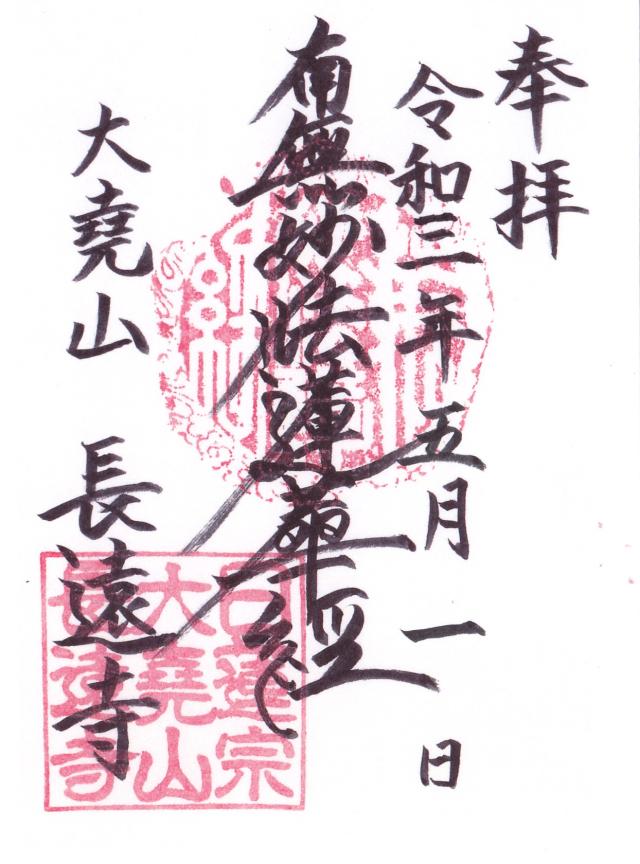 奉拝
令和三年五月一日
南無妙法蓮華経
大堯山 長遠寺
日蓮宗
大堯山
長遠寺